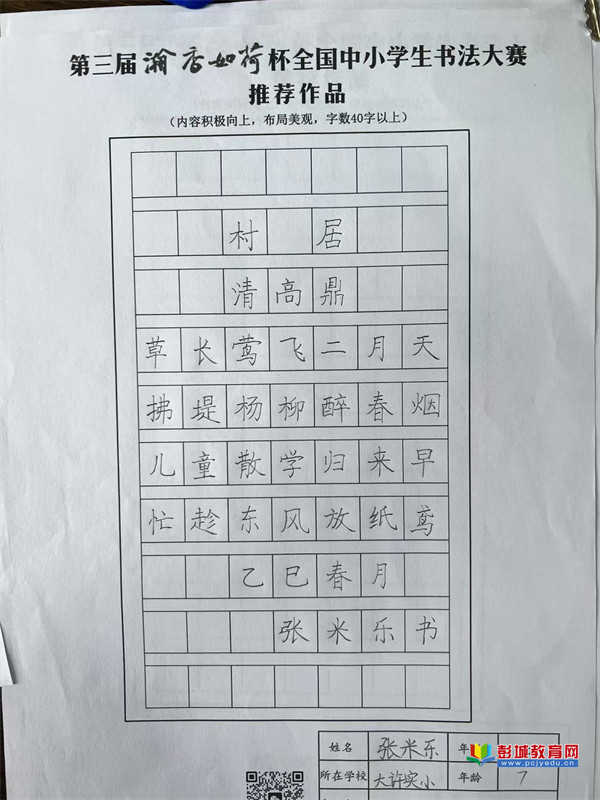 第三届瀚香如荷杯全国中小学生书法大赛
推荐作品
（内容积极向上，布局美观，字数40字以上）
村居
清高鼎
草长莺飞二月天
拂堤杨柳醉春烟
儿童散学归来早
忙趁东风放纸鸢
乙巳春月
张米乐书
姓名 张米乐 年
所在学校 大许实小 年龄 7
彭城教育网
www.pcjyedu.cn